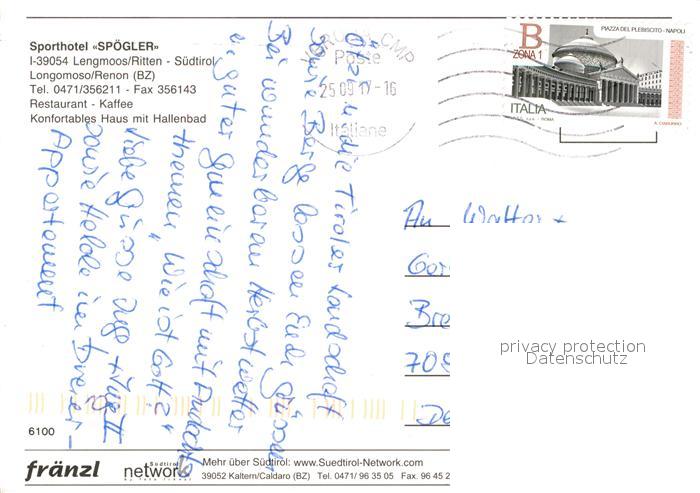 Sporthotel «SPÖGLER»
I-39054 Lengmoos/Ritten - Südtirol
Longomoso/Renon (BZ)
Tel. 0471/356211 - Fax 356143
Restaurant - Kaffee
Konfortables Haus mit Hallenbad
CMP
Poste
25 09 17-16
Italiane
B
ZONA 1
PIAZZA DEL PLEBISCITO - NAPOLI
ITALIA
ROMA
Ötzi u. die Tiroler Landschaft
sowie Berge lassen Euch Grüssen
Bei wunderbaren Herbstwetter
in guter Gemeinschaft mit
themen „Wie ist Gott?"
Liebe Grüsse
sowie Helde im Dreier-
Appartement
An Walter +
Bre
Privacy protection
Datenschutz
6100
fränzl
Südtirol
network
Mehr über Südtirol: www.Suedtirol-Network.com
39052 Kaltern/Caldaro (BZ) Tel. 0471/ 96 35 05 Fax. 96 45 2